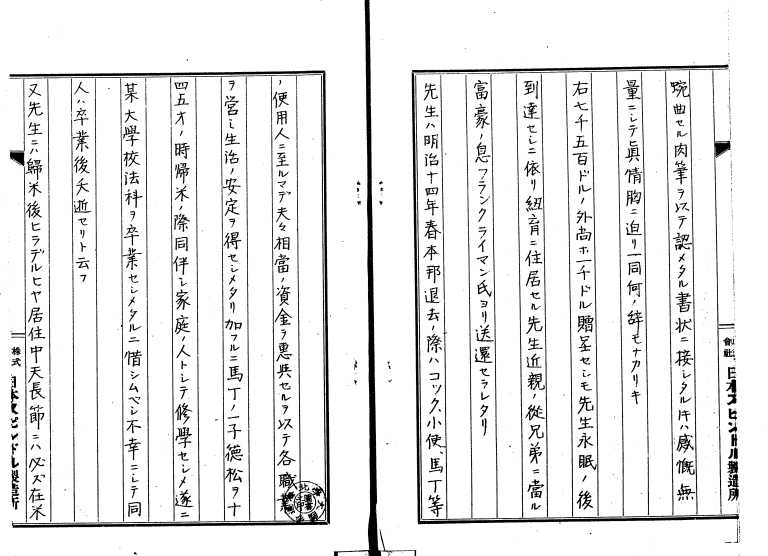 腕曲セル肉筆ヲ以テ認メタル書状ニ接シタル件ハ感慨無
量ニシテ眞情胸ニ迫リ一同何ノ辞モナカリキ
右七千五百ドルノ外尚ホ一千ドル贈呈セシモ先生永眠ノ後
到達セシニ依リ紐育ニ住居セル先生近親ノ從兄弟ニ當ル
富豪ノ息フランクライマン氏ヨリ送還セラレタリ
先生ハ明治十四年春本邦退去ノ際ハコック、小使、馬丁等
ノ使用人ニ至ルマデ夫々相當ノ資金ヲ恵與セルヲ以テ各職業
ヲ營ミ生治ノ安定ヲ得セシメタリ加フルニ馬丁ノ一子徳松ヲ十
四五才ノ時歸米ノ際同伴シ家庭ノ人トシテ修學セシメ遂ニ
某大學校法科ヲ卒業セシメタルニ惜シムベシ不幸ニシテ同
人ハ卒業後夭逝セリト云フ
又先生ニハ歸米後ヒラデルヒヤ居住中天長節ニハ必ズ在米